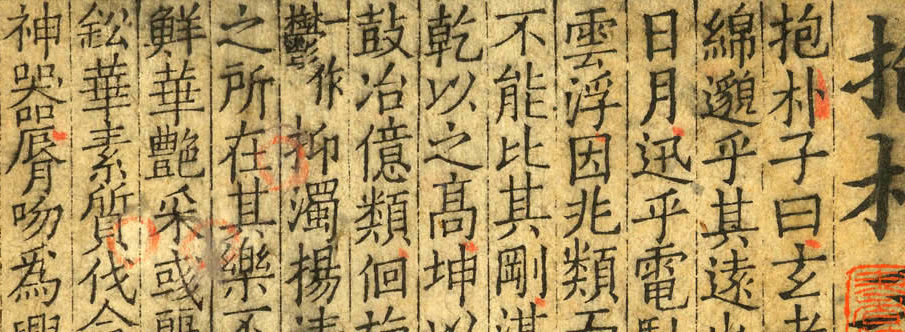 抱朴
抱朴子曰玄者
綿邈乎其遠
日月迅乎電馳
雲浮因兆類
不能比其剛湛
乾以之高坤以
鼓冶億類佪旋
鬱一作抑濁揚
之所在其樂不
鮮華艷采或麗
鈆華素質伐命
神器脣吻爲興